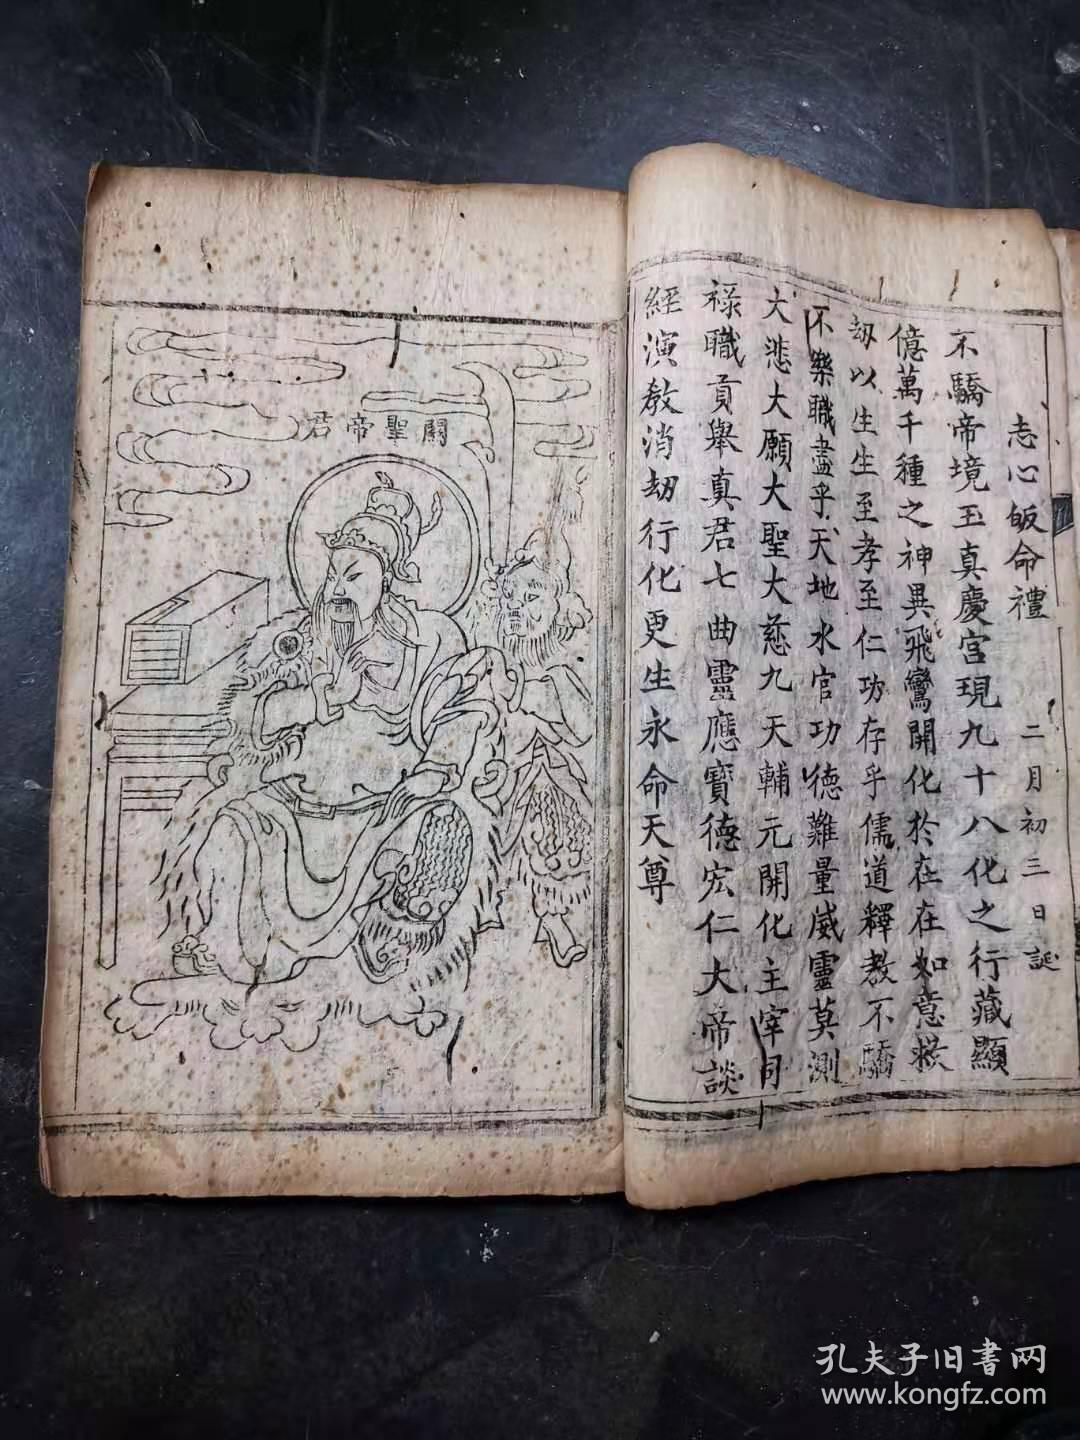 志心皈命禮 二月初三日誕
不驕帝境玉真慶宮現九十八化之行藏顯
億萬千種之神異飛鸞開化於在在如意救
劫以生生至孝至仁功存乎儒道釋教不驕
不樂職盡乎天地水官功德難量威靈莫測
大悲大願大聖大慈九天輔元開化主宰司
祿職貢舉真君七曲靈應寶德宏仁大帝談
經演教消劫行化更生永命天尊
關聖帝君
孔夫子旧書网
www.kongfz.com